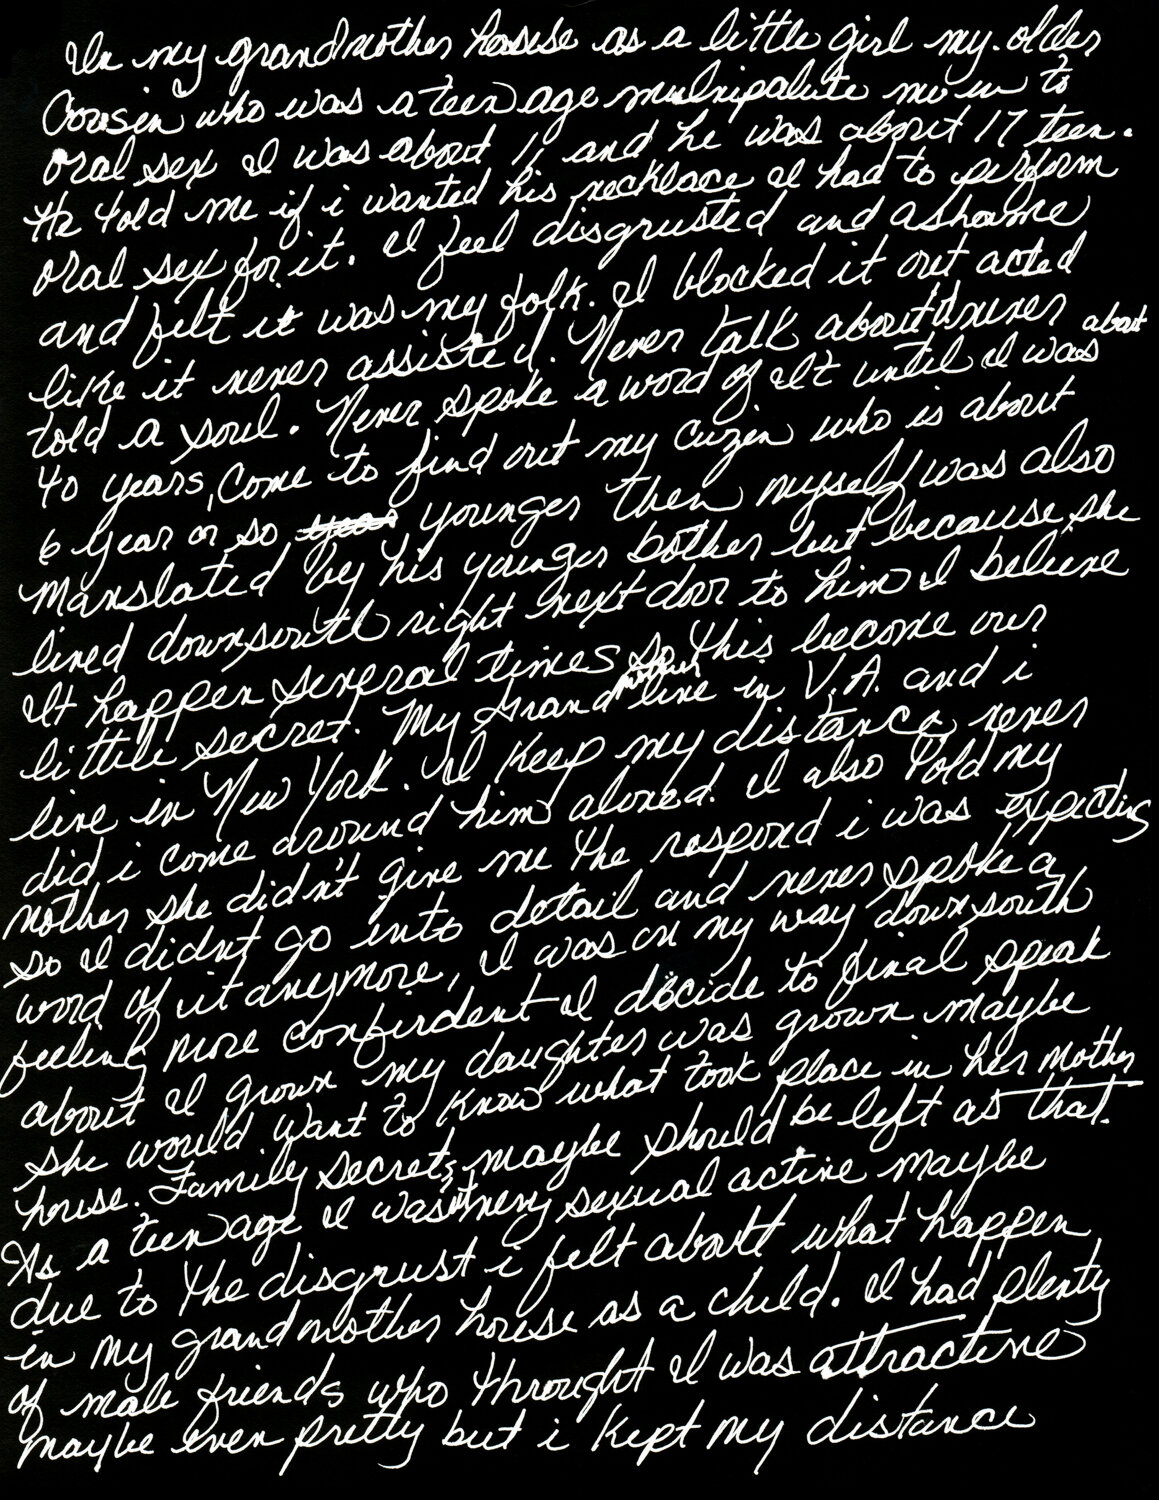 In my grandmother house as a little girl my older
Cousin who was a teen age mulnipalute me in to
oral sex I was about 11 and he was about 17 teen.
He told me if i wanted his necklace I had to perform
oral sex for it. I feel disgrusted and ashame
and felt it was my folk. I blocked it out acted
like it never assisted. Never talk about it never
told a soul. Never spoke a word of It until I was about
40 years, come to find out my cuzin who is about
6 year or so younger then myself was also
manslated by his younger bother but because she
lived downsouth right next door to him I believe
It happen several times so this become our
little secret. My Grandmother live in V.A. and i
live in New York. I keep my distance never
did i come around him aloned. I also told my
mother she didn't give me the respond i was expecting
so I didn't go into detail and never spoke a
word of it anymore, I was on my way down south
feeling more confirdent I dicide to final speak
about I grown my daughter was grown maybe
she would want to know what took place in her mother
house. Family secrets maybe should be left as that.
As a teen age I wasn't very sexual active maybe
due to the disgrust i felt about what happen
in my grandmother house as a child. I had plenty
of male friends who throught I was attractive
maybe even pretty but i kept my distance